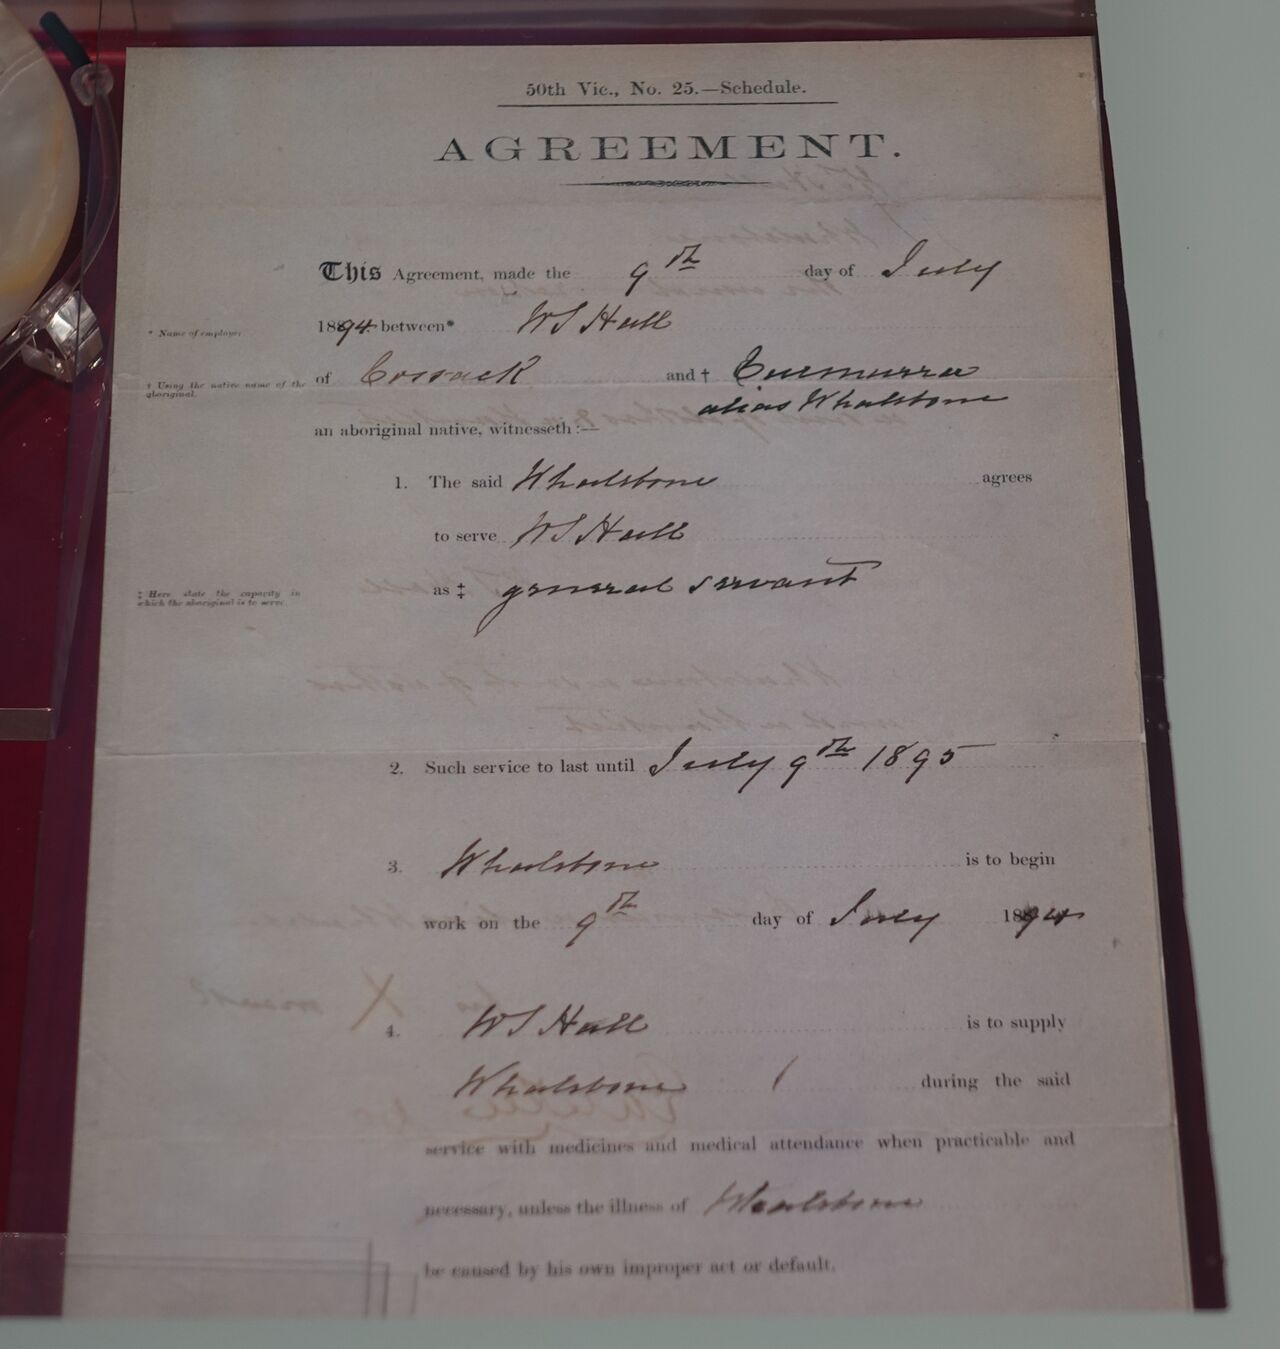 50th Vic., No. 25.—Schedule.
AGREEMENT.
This Agreement, made the 9th day of July
* Name of employer
1894 between* WS Hall
† Using the native name of the aboriginal.
of Cossack and †
alias Whalebone
an aboriginal native, witnesseth:—
1. The said Whalebone agrees
to serve WS Hall
‡ Here state the capacity in which the aboriginal is to serve.
as ‡ general servant
2. Such service to last until July 9th 1895
3. Whalebone is to begin
work on the 9th day of July 1894
4. WS Hall is to supply
Whalebone during the said
service with medicines and medical attendance when practicable and
necessary, unless the illness of Whalebone
be caused by his own improper act or default.